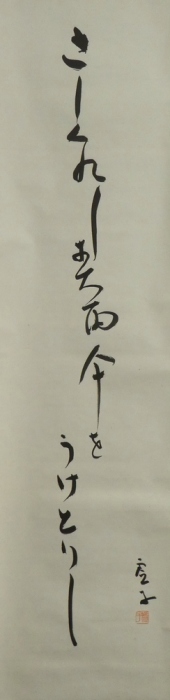 さしくれし春雨傘をうけとりし
虚子